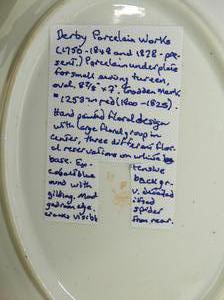 Derby Porcelain Works
(1750-1848 and 1878-pre-
sent.) Porcelain underplate
for small saving tureen,
oval 8 7/8" x 7". Crooden Mark
#2583 in red (1800-1825).
Hand painted floral design
with large floral group in
center, three different flor-
al reservations on white
base. Ex- tensive
cobalt blue backgr.
and with
gilding. Most
gadroon edge, spider
cracks visible from rear.